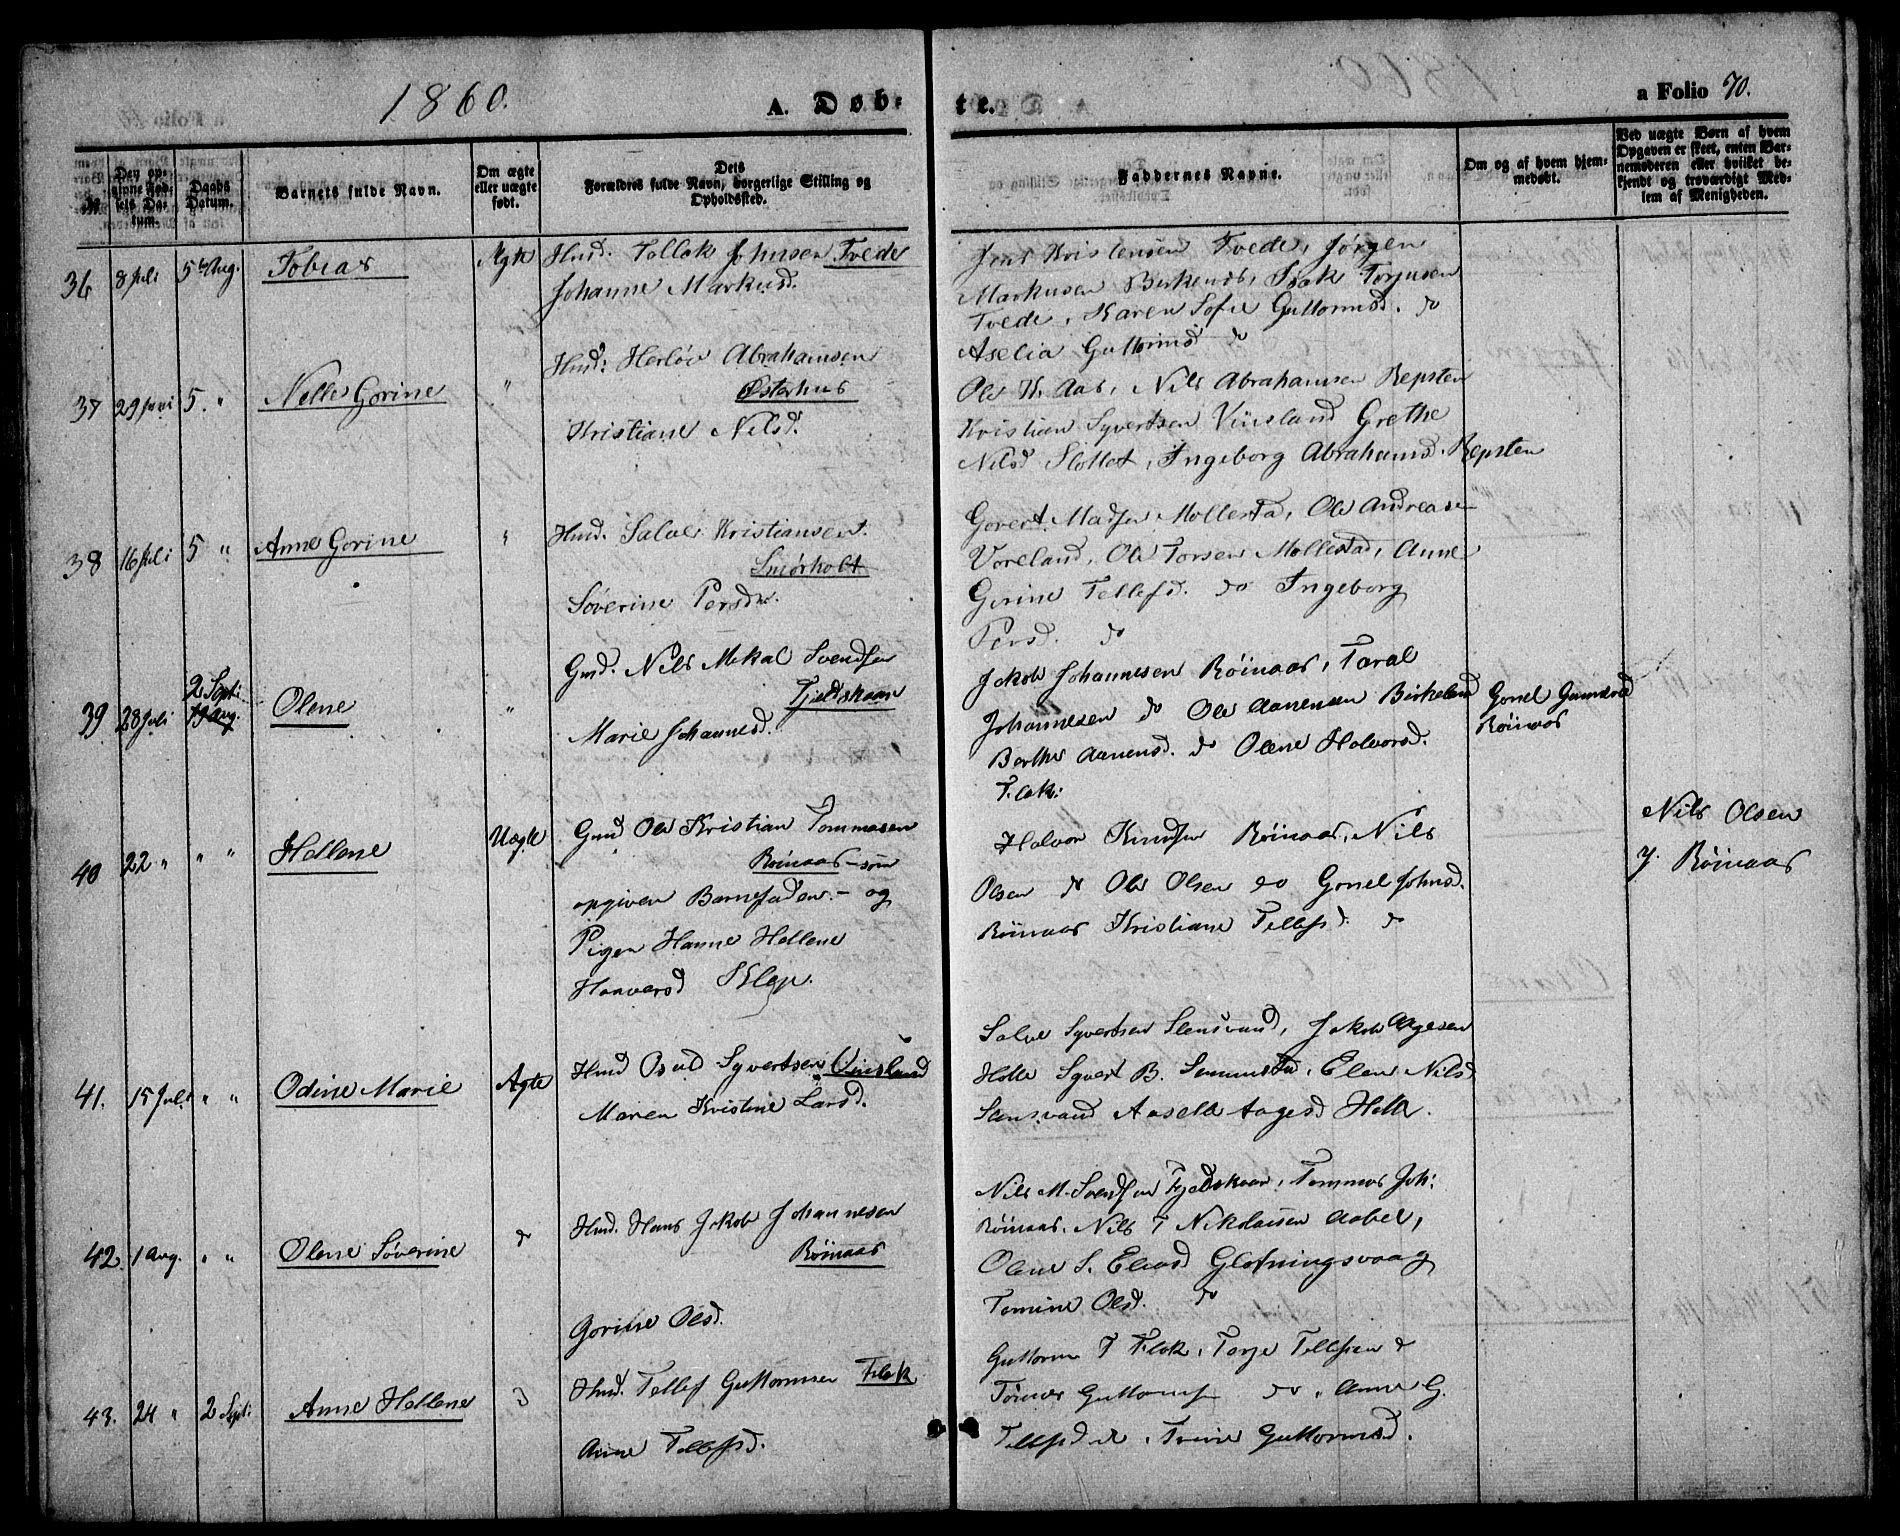 1860.
A. Døb-
te.
a Folio 70.
№
Den opgivne Fødsels Datum.
Daabs Datum.
Barnets fulde Navn.
Om ægte eller uægte født.
Dets Forældres fulde Navn, borgerlige Stilling og Opholdssted.
Faddernes Navne.
Om og af hvem hjemmedøbt.
Ved uægte Børn af hvem Opgaven er skeet, enten Barnemoderen eller hvilket bekjendt og troværdigt Medlem af Menigheden.
36 8 Juli 5te Aug. Tobias Ægte Husd. Tollak Johnsen Tvede
Johanne Markusd.
Jens Kristensen Tvede, Jørgen
Markusen Birkenes, Isak Torjusen
Tvede, Karen Sofie Guttormsd. do
Aselia Guttormsd do
37 29 Juni 5. " Nelle Gorine " Husd: Herløv Abrahamsen
Østerhus
Kristiane Nilsd.
Ole K. Aas, Nils Abrahamsen Repsten
Kristian Syvertsen Vinsland Grethe
Nilsd Slottet, Ingeborg Abrahamsd. Repsten
38 16 Juli 5 " Anne Gorine " Husd. Salve Kristiansen
Smørholt
Søverine Persdr.
Govert Madsen Mollestad, Ole Andreasen
Voreland, Ole Torsen Mollestad, Anne
Gorine Tellefsd. do Ingeborg
Persd. do
39 28 Juli 2 Sept: 19 Aug. Olene " Gmd. Nils Mikal Svendsen
Fjeldskaar
Marie Johannesd.
Jakob Johannesen Røinaas, Taral
Johannesen do Ole Aanensen Birkeland
Berthe Aanensd. do Olene Halvorsd.
Flak:
Gonel Gundersd
Røinaas
40 22 " " " Hellene Uægte Gmd Ole Kristian Tommesen
Røinaas - som
opgiven Barnefader. - og
Pigen Hanne Hellene
Haaversd Klep.
Halvor Knudsen Røinaas, Nils
Olsen do Ole Olsen do Gonel Johnsd.
Røinaas Kristiane Tellefsd. do
Nils Olsen
Røinaas
41. 15 Juli " " Odine Marie Ægte Husd Osuld Syvertsen Vinsland
Maren Kristine Larsd.
Salve Syvertsen Stensvand, Jakob Aagesen
Holte Syvert B. Senumstad, Elen Nilsd
Stensvand Aaselle Aagesd Holte.
42. 1 Aug. " " Olene Søverine do Husd. Hans Jakob Johannesen
Røinaas
Gorine Olsd.
Nils M. Svendsen Fjeldskaar, Tommes Joh:
Røinaas. Nils T Nikolaisen Aabel,
Olene S. Eliasd Glopningsvaag
Tomine Olsd. do
43. 24 " 2 Sept: Anne Hellene do Husd. Tellef Guttormsen Flak
Anne Tellefsd.
Guttorm T Flak, Torje Tellefsen do
Tønnes Guttormsen do, Anne G.
Tellefsd do, Trine Guttormsd.